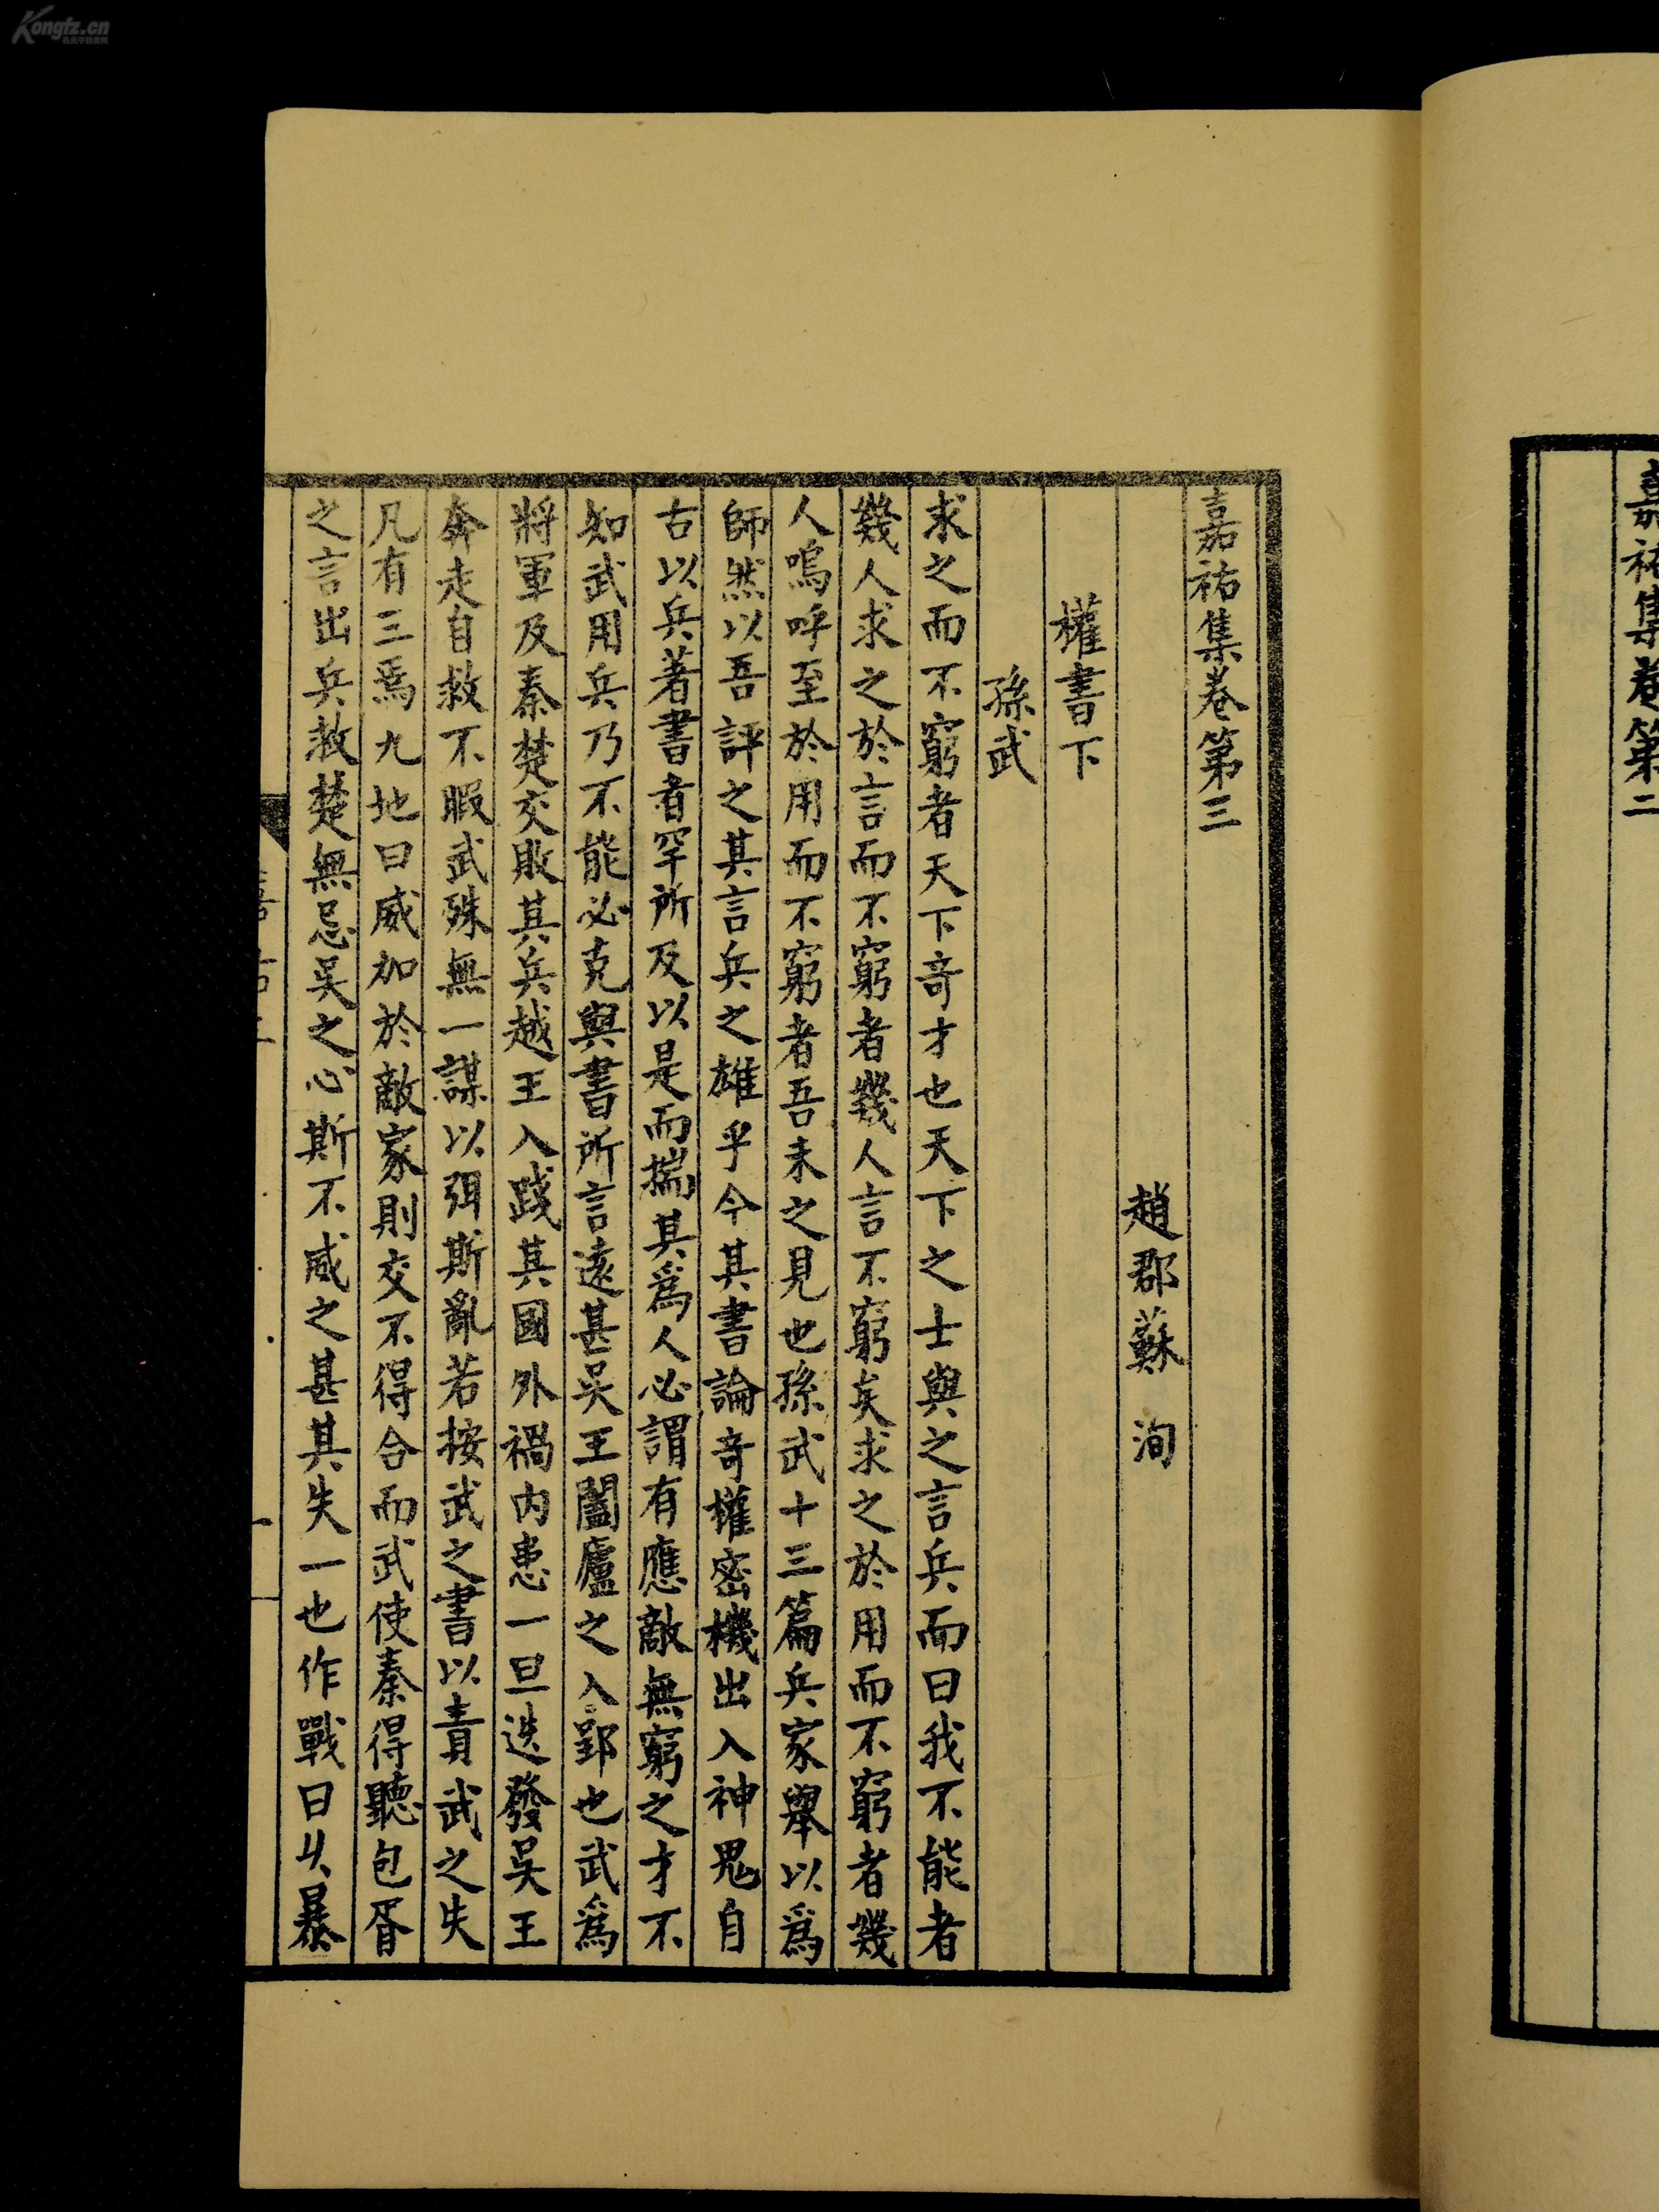 Kongfz.cn
孔夫子拍卖网
嘉祐集卷第二
嘉祐集卷第三
趙郡蘇 洵
權書下
孫武
求之而不窮者天下奇才也天下之士與之言兵而曰我不能者
幾人求之於言而不窮者幾人言不窮矣求之於用而不窮者幾
人嗚呼至於用而不窮者吾未之見也孫武十三篇兵家舉以為
師然以吾評之其言兵之雄乎今其書論奇權密機出入神鬼自
古以兵著書者罕所及以是而揣其為人必謂有應敵無窮之才不
知武用兵乃不能必克與書所言遠甚吳王闔廬之入郢也武為
將軍及秦楚交敗其兵越王入踐其國外禍内患一旦迭發吳王
奔走自救不暇武殊無一謀以弭斯亂若按武之書以責武之失
凡有三焉九地曰威加於敵家則交不得合而武使秦得聽包胥
之言出兵救楚無忌吳之心斯不威之甚其失一也作戰曰乆暴